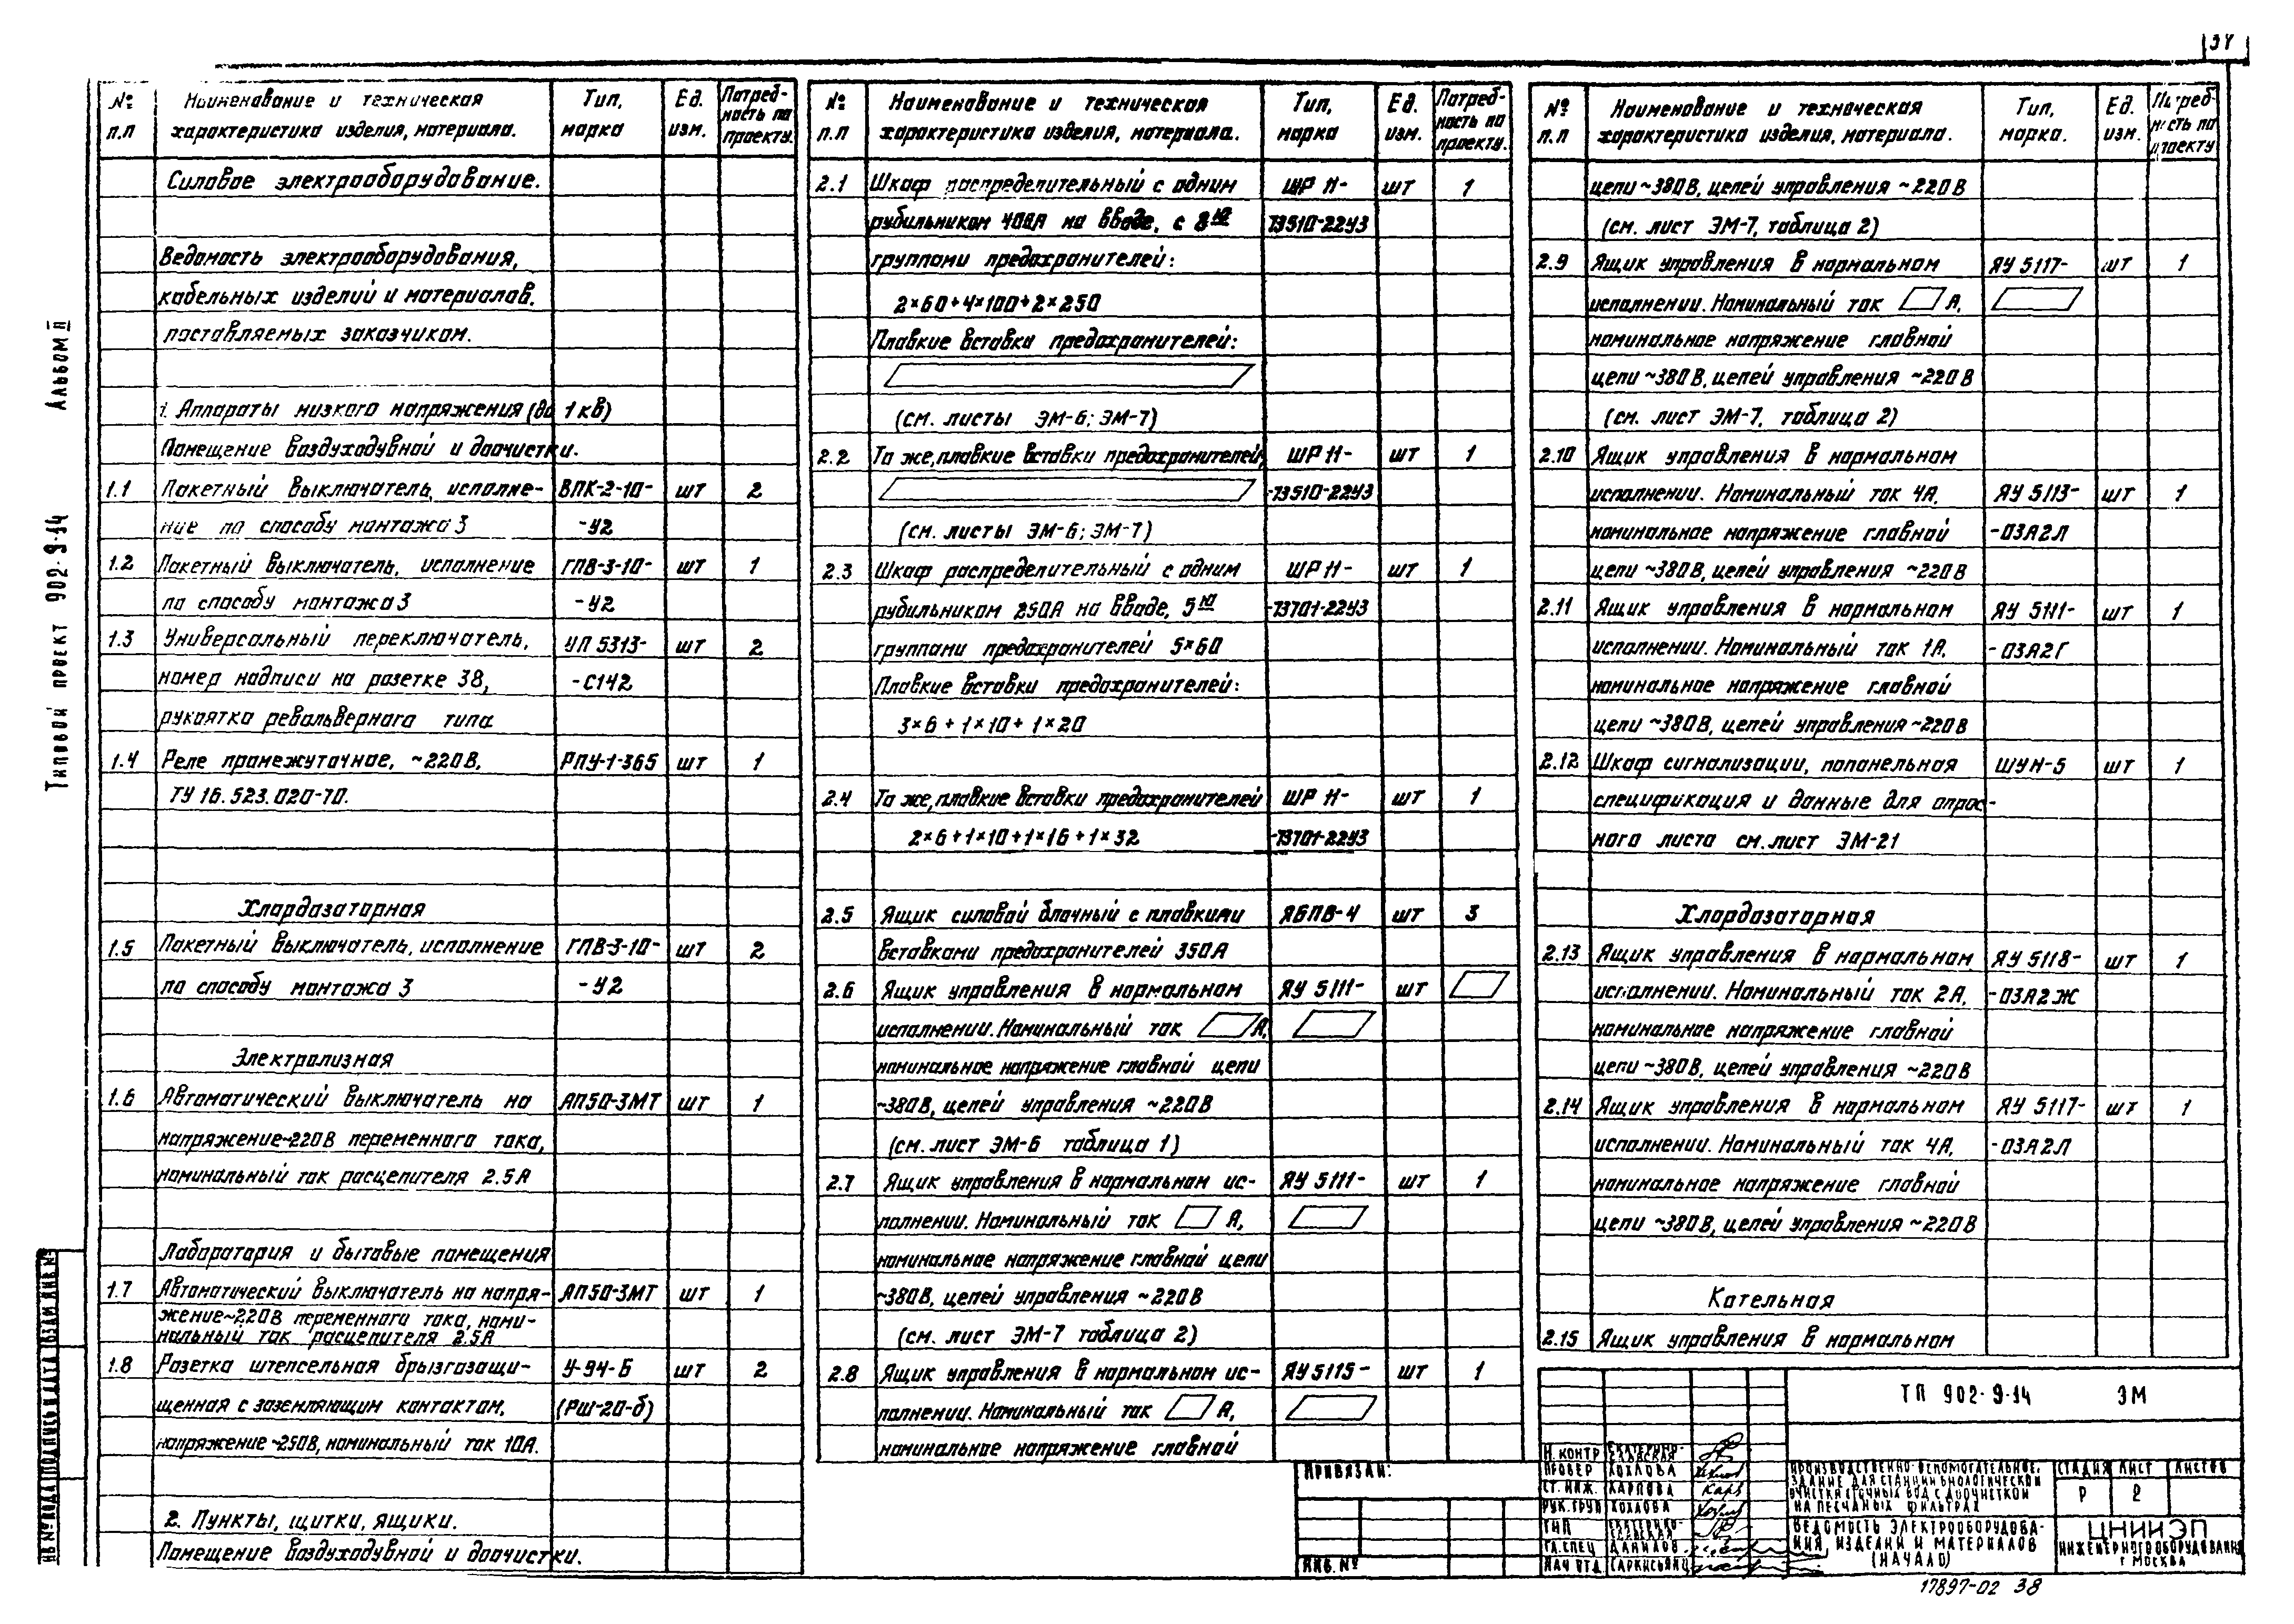 34
Альбом II
Типовой проект 902-9-14
№ п.п
Наименование и техническая характеристика изделия, материала.
Тип, марка
Ед. изм.
Потребность по проекту.
Силовое электрооборудование.
Ведомость электрооборудования,
кабельных изделий и материалов,
поставляемых заказчиком.
1. Аппараты низкого напряжения (до 1кв)
Помещение воздуходувной и доочистки.
1.1 Пакетный выключатель, исполне- ВПК-2-10- шт 2
ние по способу монтажа 3 -У2
1.2 Пакетный выключатель, исполнение ГПВ-3-10- шт 1
по способу монтажа 3 -У2
1.3 Универсальный переключатель, УП 5313- шт 2
номер надписи на розетке 38, -С142
рукоятка револьверного типа
1.4 Реле промежуточное, ~220В, РПУ-1-365 шт 1
ТУ 16.523.020-70.
Хлордозаторная
1.5 Пакетный выключатель, исполнение ГПВ-3-10- шт 2
по способу монтажа 3 -У2
Электролизная
1.6 Автоматический выключатель на АП50-3МТ шт 1
напряжение~220В переменного тока,
номинальный ток расцепителя 2.5А
Лаборатория и бытовые помещения
1.7 Автоматический выключатель на напря- АП50-3МТ шт 1
жение~220В переменного тока, номи-
нальный ток расцепителя 2.5А
1.8 Розетка штепсельная брызгозащи- У-94-Б шт 2
щенная с заземляющим контактом, (РШ-20-б)
напряжение ~250В, номинальный ток 10А.
2. Пункты, щитки, ящики.
Помещение воздуходувной и доочистки.
№ п.п
Наименование и техническая характеристика изделия, материала.
Тип, марка
Ед. изм.
Потребность по проекту.
2.1 Шкаф распределительный с одним ШР 11- шт 1
рубильником 400А на вводе, с 8ю -73510-22У3
группами предохранителей:
2×60+4×100+2×250
Плавкие вставки предохранителей:
(см. листы ЭМ-6; ЭМ-7)
2.2 То же, плавкие вставки предохранителей, ШР 11- шт 1
-73510-22У3
(см. листы ЭМ-6; ЭМ-7)
2.3 Шкаф распределительный с одним ШР 11- шт 1
рубильником 250А на вводе, 5ю -73701-22У3
группами предохранителей 5×60
Плавкие вставки предохранителей:
3×6 + 1×10 + 1×20
2.4 То же, плавкие вставки предохранителей ШР 11- шт 1
2×6+1×10+1×16+1×32 -73701-22У3
2.5 Ящик силовой блочный с плавкими ЯБПВ-4 шт 3
вставками предохранителей 350А
2.6 Ящик управления в нормальном ЯУ 5111- шт
исполнении. Номинальный ток А,
номинальное напряжение главной цепи
~380В, цепей управления ~220В
(см. лист ЭМ-6 таблица 1)
2.7 Ящик управления в нормальном ис- ЯУ 5111- шт 1
полнении. Номинальный ток А,
номинальное напряжение главной цепи
~380В, цепей управления ~220В
(см. лист ЭМ-7 таблица 2)
2.8 Ящик управления в нормальном ис- ЯУ 5115- шт 1
полнении. Номинальный ток А,
номинальное напряжение главной
№ п.п
Наименование и техническая характеристика изделия, материала.
Тип, марка.
Ед. изм.
Потребность по проекту
цепи ~380В, цепей управления ~220В
(см. лист ЭМ-7, таблица 2)
2.9 Ящик управления в нормальном ЯУ 5117- шт 1
исполнении. Номинальный ток А,
номинальное напряжение главной
цепи ~380В, цепей управления ~220В
(см. лист ЭМ-7, таблица 2)
2.10 Ящик управления в нормальном
исполнении. Номинальный ток 4А, ЯУ 5113- шт 1
номинальное напряжение главной -03А2Л
цепи ~380В, цепей управления ~220В
2.11 Ящик управления в нормальном ЯУ 5111- шт 1
исполнении. Номинальный ток 1А, -03А2Г
номинальное напряжение главной
цепи ~380В, цепей управления ~220В
2.12 Шкаф сигнализации, попанельная ШУН-5 шт 1
спецификация и данные для опрос-
ного листа см. лист ЭМ-21
Хлордозаторная
2.13 Ящик управления в нормальном ЯУ 5118- шт 1
исполнении. Номинальный ток 2А, -03А2Ж
номинальное напряжение главной
цепи ~380В, цепей управления ~220В
2.14 Ящик управления в нормальном ЯУ 5117- шт 1
исполнении. Номинальный ток 4А, -03А2Л
номинальное напряжение главной
цепи ~380В, цепей управления ~220В
Котельная
2.15 Ящик управления в нормальном
Привязан:
Инв. №
ТП 902-9-14 ЭМ
Н. контр Екатеринославская
Провер Хохлова
Ст. инж. Карпова
Рук. груп Хохлова
ГИП Екатеринославская
Гл. спец Данилов
Нач отд Саркисьянц
Производственно-вспомогательное
здание для станции биологической
очистки сточных вод с доочисткой
на песчаных фильтрах
Стадия Лист Листов
Р 2
Ведомость электрооборудова-
ния, изделий и материалов
(начало)
ЦНИИЭП
инженерного оборудования
г Москва
17897-02 38
Инв № подл Подпись и дата Взам инв №